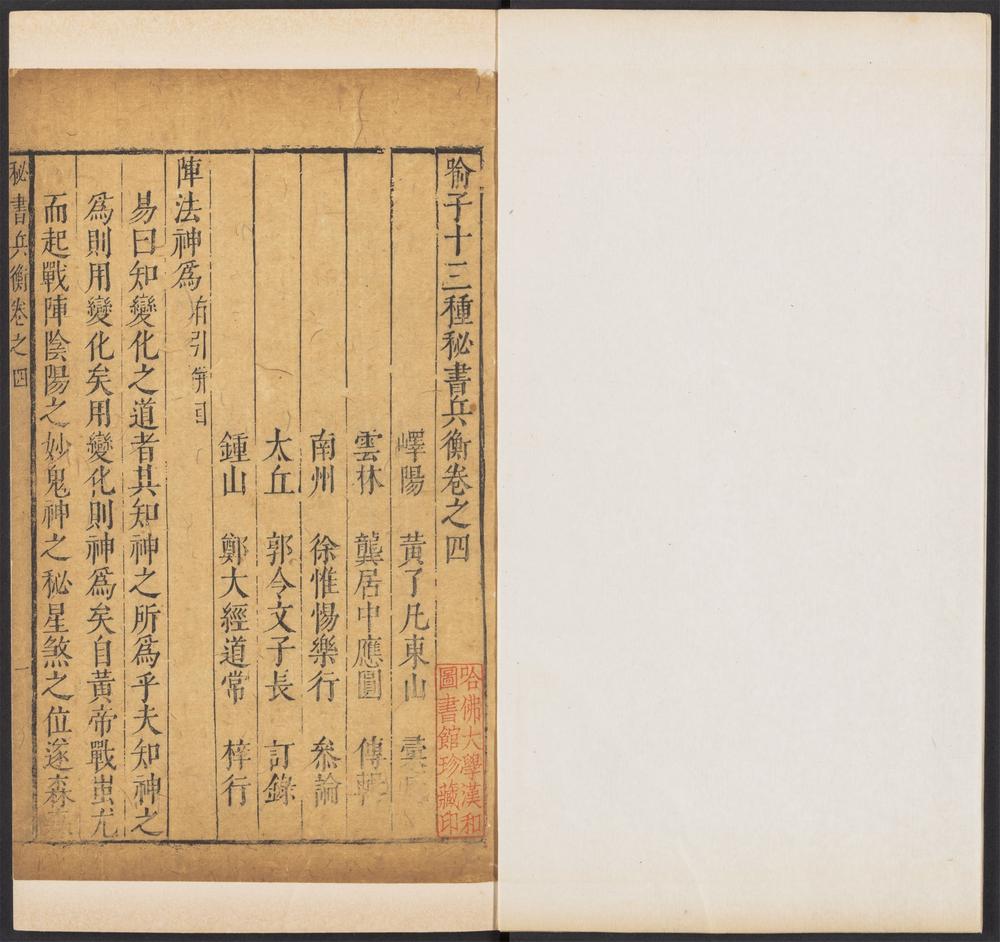 喻子十三種秘書兵衡卷之四
嶧陽 黃了凡東山
雲林 龔居中應圓 傳輯
南州 徐惟惕樂行 叅論
太丘 郭令文子長 訂錄
鍾山 鄭大經道常 梓行
陣法神爲 引
易曰知變化之道者其知神之所爲乎夫知神之
爲則用變化矣用變化則神爲矣自黃帝戰蚩尤
而起戰陣陰陽之妙鬼神之秘星煞之位遂森
秘書兵衡卷之四
一
哈佛大學漢和
圖書館珍藏印